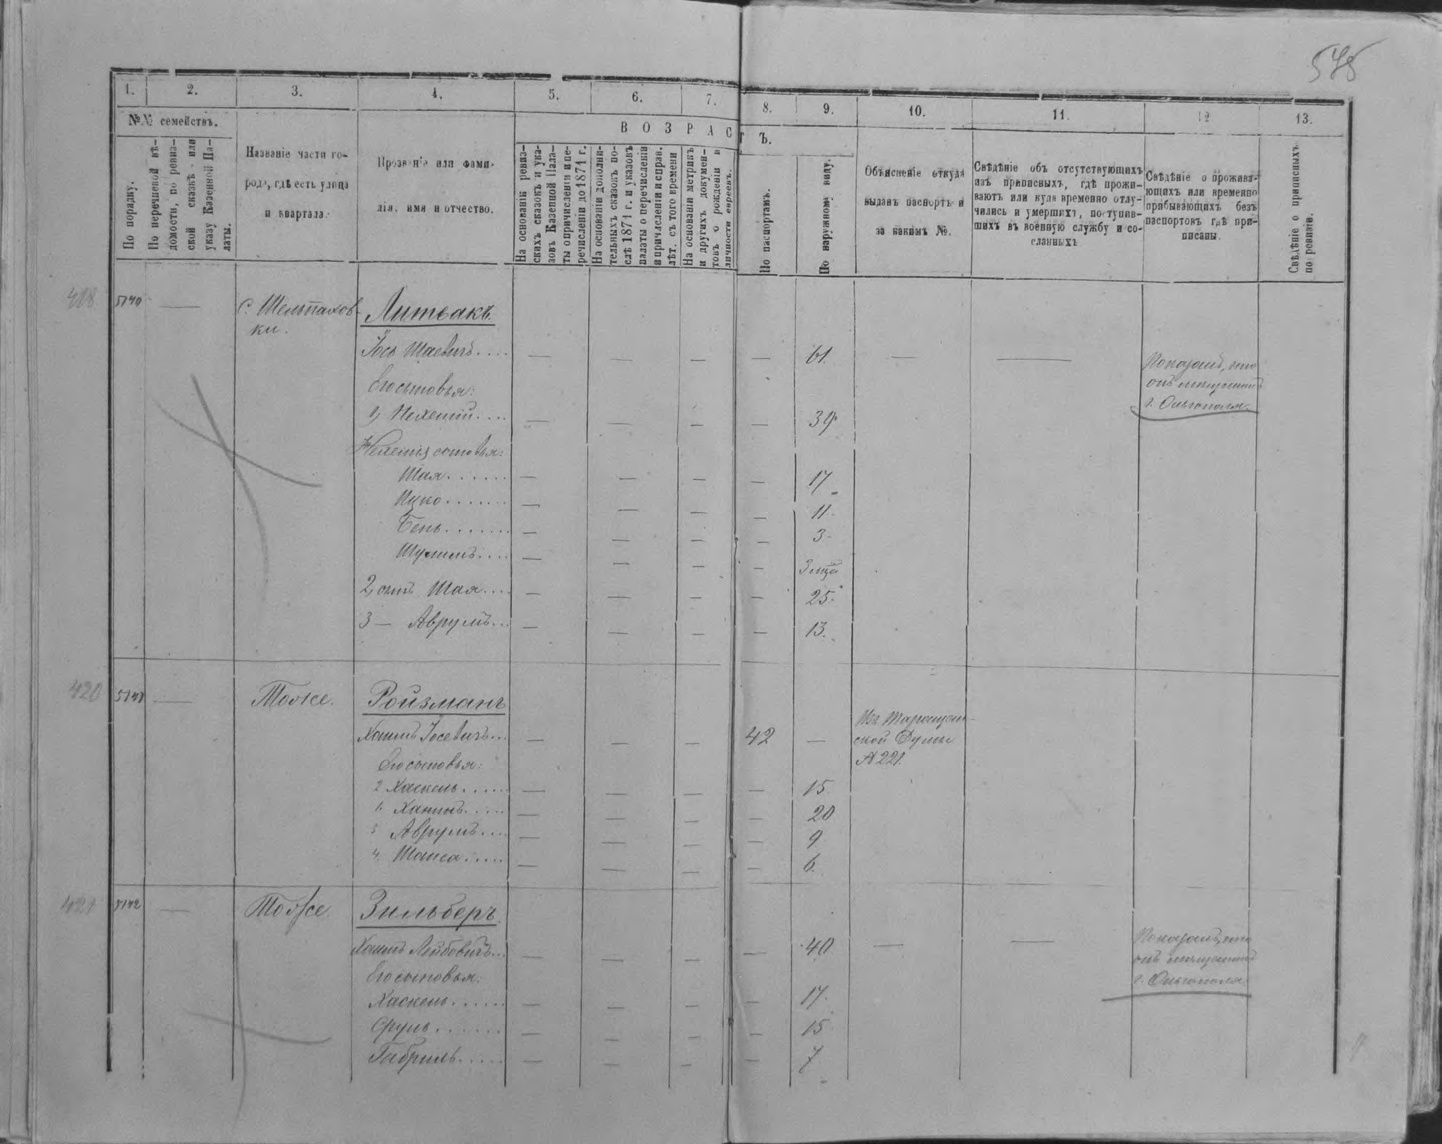 575
1. 2. 3. 4. 5. 6. 7. 8. 9. 10. 11. 12 13.
№№ семействъ.
В О З Р А С Т Ъ.
По порядку.
По перечневой вѣ-
домости, по ревиз-
ской сказкѣ или
указу Казенной Па-
латы.
Названіе части го-
рода, гдѣ есть улица
и кварталъ.
Прозваніе или фами-
лія, имя и отчество.
На основаніи ревиз-
скихъ сказокъ и ука-
зовъ Казенной Пала-
ты о причисленіи и пе-
речисленіи до 1871 г.
На основаніи дополни-
тельныхъ сказокъ по-
слѣ 1871 г. и указовъ
палаты о перечисленіи
и причисленіи и справ.
лѣт. съ того времени
На основаніи метрикъ
и другихъ докумен-
товъ о рожденіи и
личности евреевъ.
По паспортамъ.
По наружному виду.
Объясненіе откуда
выданъ паспортъ и
за какимъ №.
Свѣдѣніе объ отсутствующихъ
изъ приписныхъ, гдѣ прожи-
ваютъ или куда временно отлу-
чились и умершихъ, поступив-
шихъ въ военную службу и со-
сланныхъ
Свѣдѣніе о прожива-
ющихъ или временно
прибывающихъ безъ
паспортовъ гдѣ при-
писаны.
Свѣдѣніе о приписныхъ
по ревизіи.
418 5740 — с. Шельпахов- Литвакъ
ки.
Іось Шаевичъ.... — — — — 61. — — Показалъ, что
Его сыновья: онъ мещанинъ
1, Нехемій.... — — — — 39 г. Ольгополя.
Нехемія сыновья:
Шая...... — — — — 17
Ицко....... — — — — 11.
Бень....... — — — — 3
Шулимъ.... — — — — 3 мѣс
2, сынъ Шая.... — — — — 25.
3 — Аврумъ... — — — — 13.
420 5741 — Тоже. Ройзманъ
Хаимъ Іосевичъ... — — — 42 — Изъ Таращан-
ской Думы
№ 221.
Его сыновья:
2 Хаскель..... — — — — 15
1. Хаимъ..... — — — — 20
3 Аврумъ.... — — — — 9
4. Шомса..... — — — — 6.
421 5742 — Тоже Зильберъ
Хаимъ Лейбовичъ... — — — — 40 — — Показалъ, что
Его сыновья: онъ мещанинъ
г. Ольгополя.
Хаскель...... — — — — 17.
Сруль....... — — — — 15
Габриль..... — — — — 7